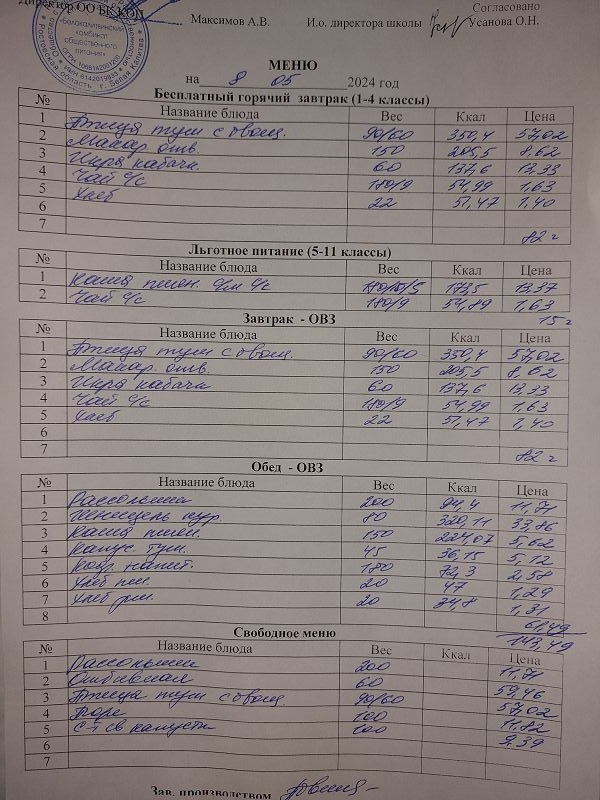 Согласовано
Директор ОО БК КОП Максимов А.В. И.о. директора школы Усанова О.Н.
«Белокалитвинский
комбинат
общественного
питания»
ОГРН 1066142001200
ИНН 6142019833
Ростовская область г. Белая Калитва
МЕНЮ
на 8 05 2024 год
Бесплатный горячий завтрак (1-4 классы)
№ Название блюда Вес Ккал Цена
1 Птица туш с овощ. 90/60 350,4 57,02
2 Макар. отв. 150 205,5 8,62
3 Икра кабачк. 60 137,6 13,33
4 Чай с/с 180/9 54,99 1,63
5 Хлеб 22 51,47 1,40
6
7 82 =
Льготное питание (5-11 классы)
№ Название блюда Вес Ккал Цена
1 Каша пшен. с/м с/с 173,5 13,37
2 Чай с/с 180/9 54,89 1,63
15 =
Завтрак - ОВЗ
№ Название блюда Вес Ккал Цена
1 Птица туш с овощ. 90/60 350,4 57,02
2 Макар. отв. 150 205,5 8,62
3 Икра кабачк 60 137,6 13,33
4 Чай с/с 180/9 54,99 1,63
5 Хлеб 22 51,47 1,40
6
7 82 =
Обед - ОВЗ
№ Название блюда Вес Ккал Цена
1 Рассольник 200 94,4 11,71
2 Шницель кур 80 320,11 33,86
3 Каша пшен. 150 224,07 5,62
4 Капус. туш. 45 36,15 5,12
5 Кофр. напит. 180 72,3 2,58
6 Хлеб пш. 20 47 1,29
7 Хлеб рж. 20 34,8 1,31
8 61,49
143,49
Свободное меню
№ Название блюда Вес Ккал Цена
1 Рассольник 200 11,71
2 Отбивная 60 59,46
3 Птица туш с овощ. 90/60 57,02
4 Пюре 100 11,82
5 С-т св капусты 100 9,39
6
7
Зав. производством